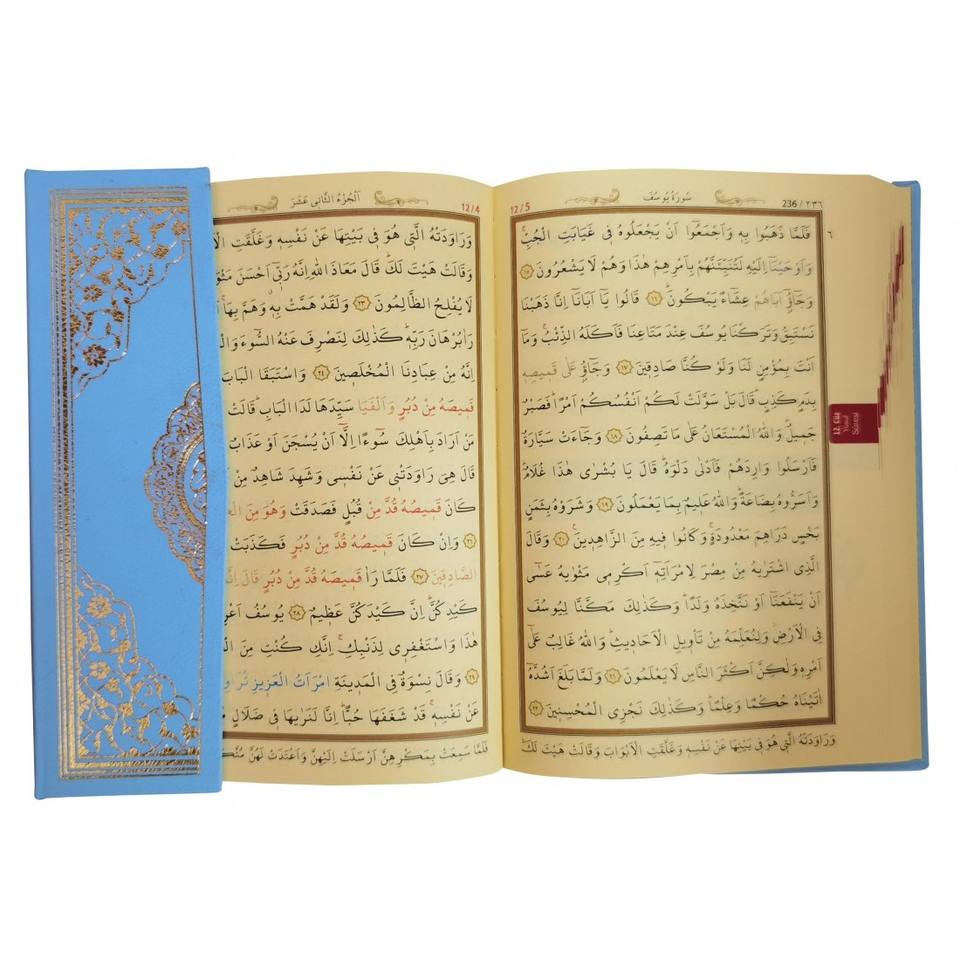 236 / ٢٣٦
سُورَةُ يُوسُفَ
12/5
فَلَمَّا ذَهَبُوا بِهِ وَاَجْمَعُوا اَنْ يَجْعَلُوهُ فِي غَيَابَتِ الْجُبِّۚ
وَاَوْحَيْنَٓا اِلَيْهِ لَتُنَبِّئَنَّهُمْ بِاَمْرِهِمْ هٰذَا وَهُمْ لَا يَشْعُرُونَ ﴿١٥﴾
وَجَٓاؤُٓ اَبَاهُمْ عِشَٓاءً يَبْكُونَۜ ﴿١٦﴾ قَالُوا يَٓا اَبَانَٓا اِنَّا ذَهَبْنَا
نَسْتَبِقُ وَتَرَكْنَا يُوسُفَ عِنْدَ مَتَاعِنَا فَاَكَلَهُ الذِّئْبُۚ وَمَٓا
اَنْتَ بِمُؤْمِنٍ لَنَا وَلَوْ كُنَّا صَادِقِينَ ﴿١٧﴾ وَجَٓاؤُ عَلٰى قَمِيصِهِ
بِدَمٍ كَذِبٍۜ قَالَ بَلْ سَوَّلَتْ لَكُمْ اَنْفُسُكُمْ اَمْرًاۜ فَصَبْرٌ
جَمِيلٌۜ وَاللّٰهُ الْمُسْتَعَانُ عَلٰى مَا تَصِفُونَ ﴿١٨﴾ وَجَٓاءَتْ سَيَّارَةٌ
فَاَرْسَلُوا وَارِدَهُمْ فَاَدْلٰى دَلْوَهُۜ قَالَ يَا بُشْرٰى هٰذَا غُلَامٌۜ
وَاَسَرُّوهُ بِضَاعَةًۜ وَاللّٰهُ عَلِيمٌ بِمَا يَعْمَلُونَ ﴿١٩﴾ وَشَرَوْهُ بِثَمَنٍ
بَخْسٍ دَرَاهِمَ مَعْدُودَةٍۚ وَكَانُوا فِيهِ مِنَ الزَّاهِدِينَ۟ ﴿٢٠﴾ وَقَالَ
الَّذِي اشْتَرٰيهُ مِنْ مِصْرَ لِامْرَاَتِهِٓ اَكْرِمِي مَثْوٰيهُ عَسٰٓى
اَنْ يَنْفَعَنَٓا اَوْ نَتَّخِذَهُ وَلَدًاۜ وَكَذٰلِكَ مَكَّنَّا لِيُوسُفَ
فِي الْاَرْضِۘ وَلِنُعَلِّمَهُ مِنْ تَأْوِيلِ الْاَحَادِيثِۜ وَاللّٰهُ غَالِبٌ عَلٰٓى
اَمْرِهِ وَلٰكِنَّ اَكْثَرَ النَّاسِ لَا يَعْلَمُونَ ﴿٢١﴾ وَلَمَّا بَلَغَ اَشُدَّهُٓ
اٰتَيْنَاهُ حُكْمًا وَعِلْمًاۜ وَكَذٰلِكَ نَجْزِي الْمُحْسِنِينَ ﴿٢٢﴾
وَرَاوَدَتْهُ الَّتِي هُوَ فِي بَيْتِهَا عَنْ نَفْسِهِ وَغَلَّقَتِ الْاَبْوَابَ وَقَالَتْ هَيْتَ لَكَۜ
12. Cüz
Yusuf
Suresi
12/4
اَلْجُزْءُ الثَّانِي عَشَرَ
وَرَاوَدَتْهُ الَّتِي هُوَ فِي بَيْتِهَا عَنْ نَفْسِهِ وَغَلَّقَتِ
وَقَالَتْ هَيْتَ لَكَۜ قَالَ مَعَاذَ اللّٰهِ اِنَّهُ رَبِّٓي اَحْسَنَ
لَا يُفْلِحُ الظَّالِمُونَ ﴿٢٣﴾ وَلَقَدْ هَمَّتْ بِهِۚ وَهَمَّ بِهَاۚ
رَاٰ بُرْهَانَ رَبِّهِۜ كَذٰلِكَ لِنَصْرِفَ عَنْهُ السُّٓوءَ
اِنَّهُ مِنْ عِبَادِنَا الْمُخْلَصِينَ ﴿٢٤﴾ وَاسْتَبَقَا
قَمِيصَهُ مِنْ دُبُرٍ وَاَلْفَيَا سَيِّدَهَا لَدَا الْبَابِۜ قَالَتْ
مَنْ اَرَادَ بِاَهْلِكَ سُٓوءًا اِلَّٓا اَنْ يُسْجَنَ اَوْ عَذَابٌ
قَالَ هِيَ رَاوَدَتْنِي عَنْ نَفْسِي وَشَهِدَ شَاهِدٌ مِنْ
كَانَ قَمِيصُهُ قُدَّ مِنْ قُبُلٍ فَصَدَقَتْ وَهُوَ مِنَ
﴿٢٦﴾ وَاِنْ كَانَ قَمِيصُهُ قُدَّ مِنْ دُبُرٍ فَكَذَبَتْ
الصَّادِقِينَ ﴿٢٧﴾ فَلَمَّا رَاٰ قَمِيصَهُ قُدَّ مِنْ دُبُرٍ قَالَ
كَيْدِكُنَّۜ اِنَّ كَيْدَكُنَّ عَظِيمٌ ﴿٢٨﴾ يُوسُفُ
هٰذَا وَاسْتَغْفِرِي لِذَنْبِكِۚ اِنَّكِ كُنْتِ مِنَ
﴿٢٩﴾ وَقَالَ نِسْوَةٌ فِي الْمَدِينَةِ امْرَاَتُ الْعَزِيزِ
عَنْ نَفْسِهِۚ قَدْ شَغَفَهَا حُبًّاۜ اِنَّا لَنَرٰيهَا فِي ضَلَالٍ
فَلَمَّا سَمِعَتْ بِمَكْرِهِنَّ اَرْسَلَتْ اِلَيْهِنَّ وَاَعْتَدَتْ لَهُنَّ